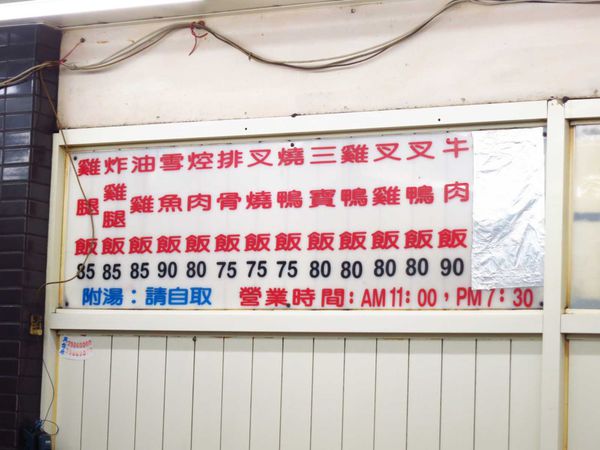 雞腿飯 85
炸雞腿飯 85
油雞飯 85
雪魚飯 90
焢肉飯 80
排骨飯 75
叉燒飯 75
燒鴨飯 75
三寶飯 80
雞鴨飯 80
叉雞飯 80
叉鴨飯 80
牛肉飯 90
附湯：請自取
營業時間：AM 11：00，PM 7：30